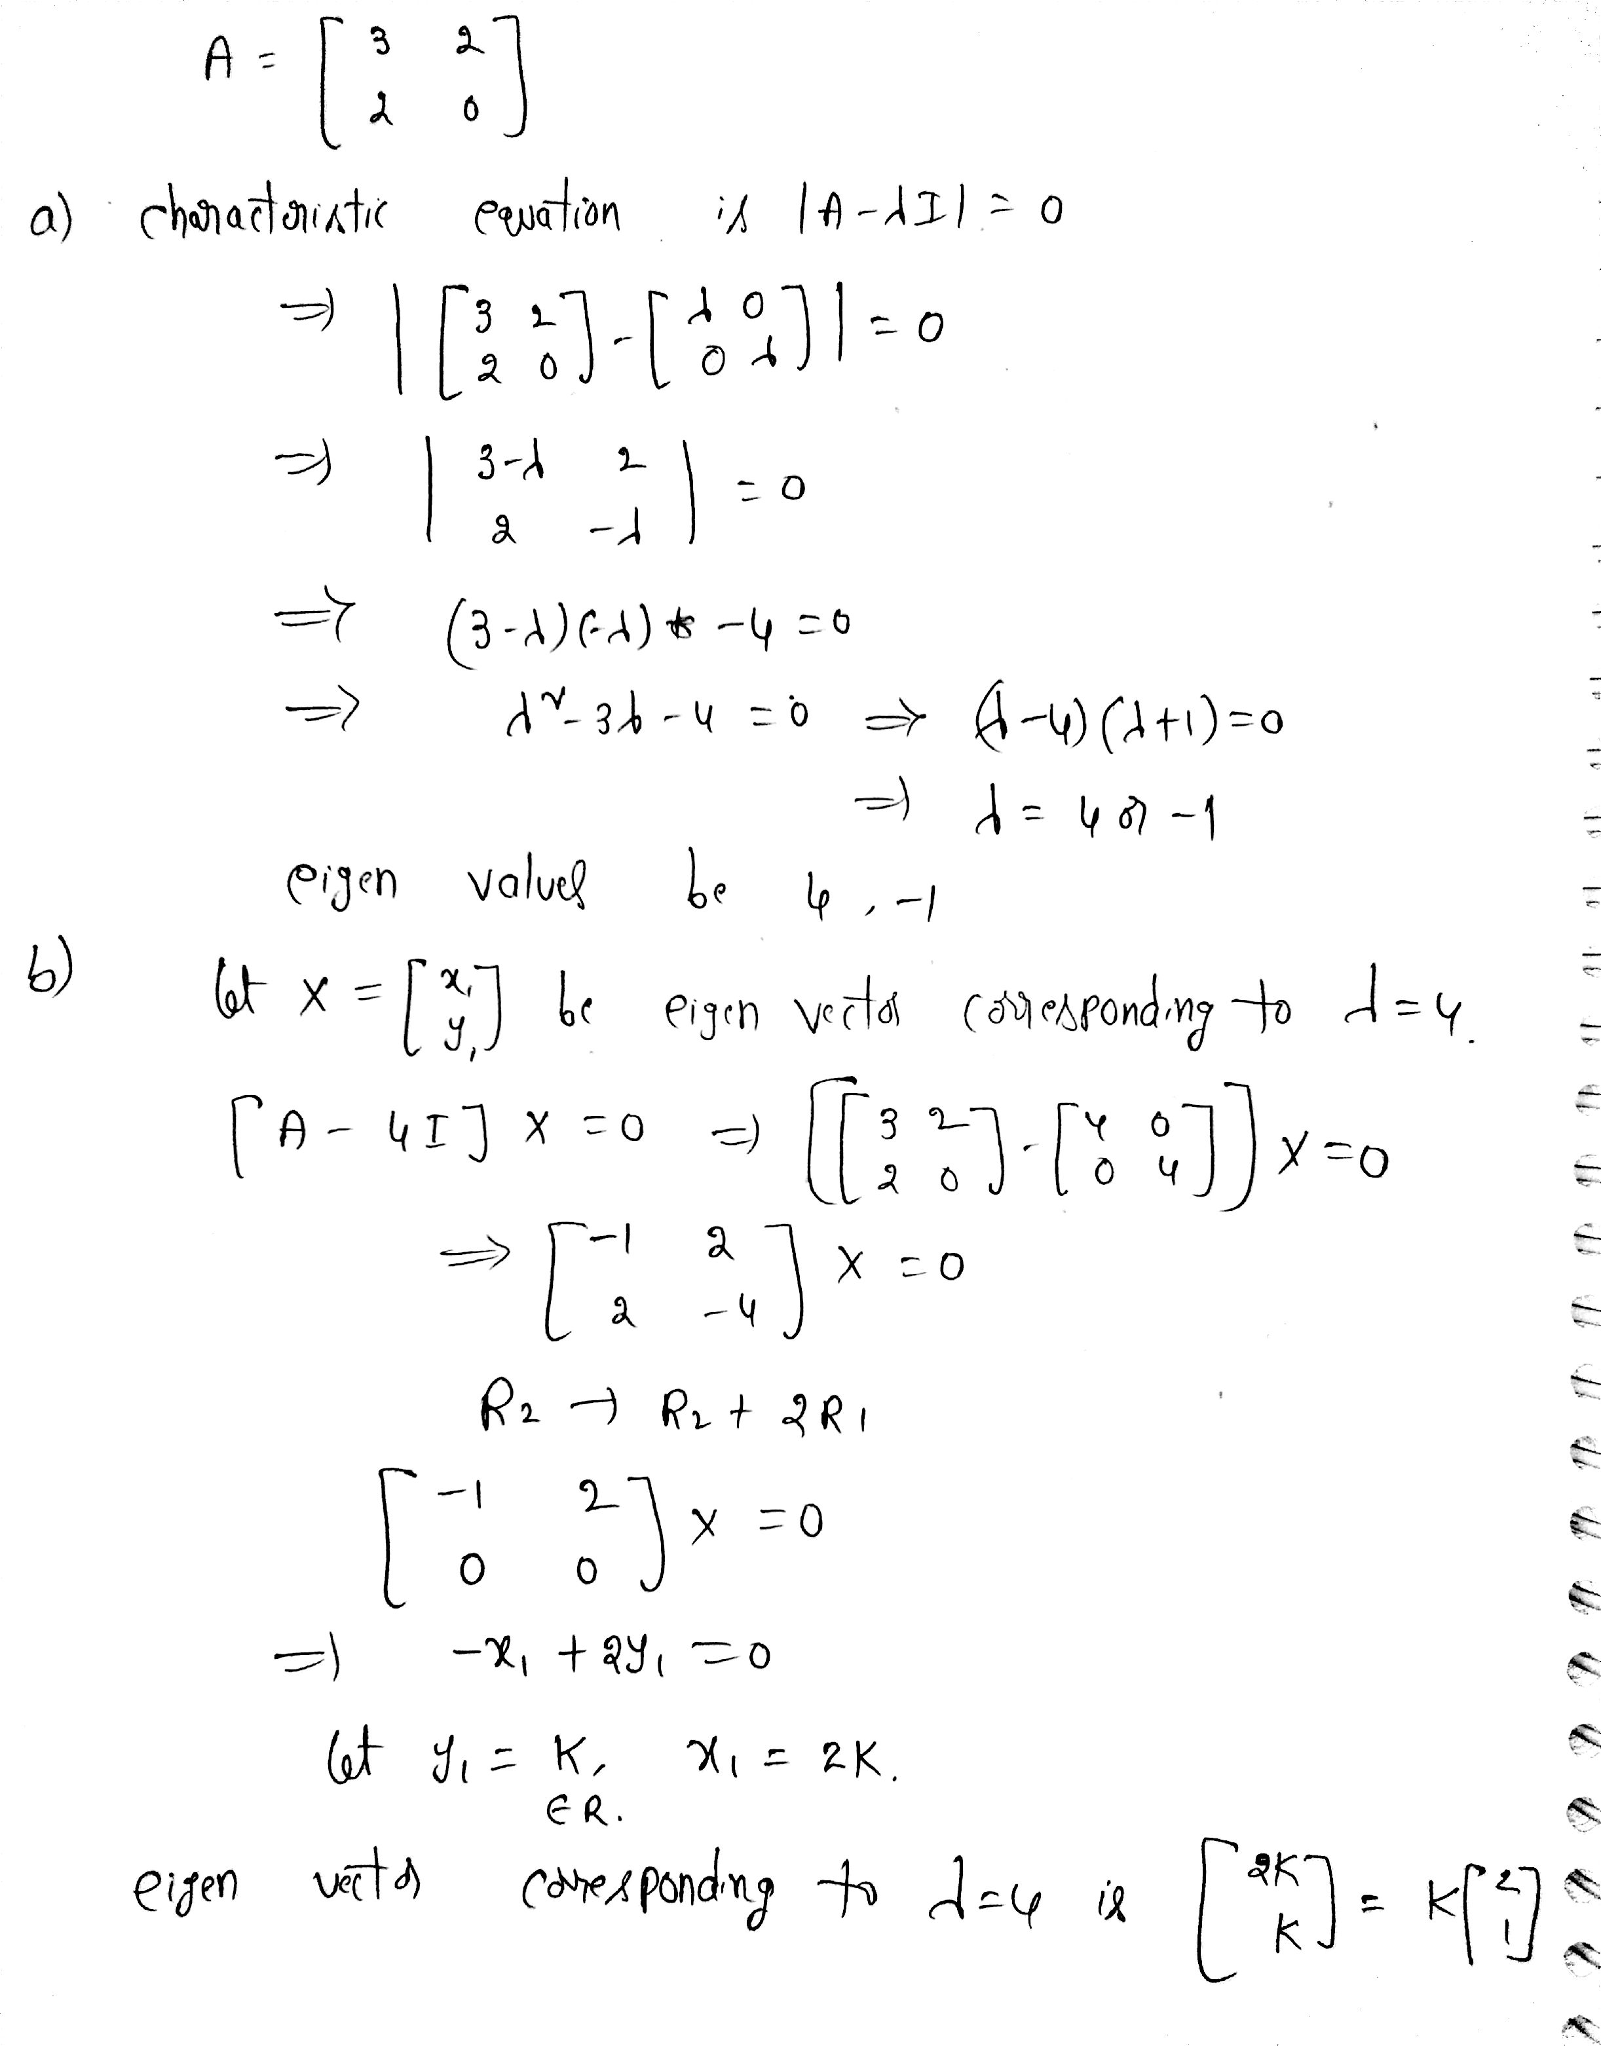 A = [ 3 2
2 0 ]
a) characteristic equation is |A-λI| = 0
⇒ | [ 3 2
2 0 ] - [ λ 0
0 λ ] | = 0
⇒ | 3-λ 2
2 -λ | = 0
⇒ (3-λ)(-λ) -4 = 0
⇒ λ² - 3λ - 4 = 0 ⇒ (λ-4)(λ+1) = 0
⇒ λ = 4 or -1
eigen values be 4, -1
b) let X = [ x₁
y₁ ] be eigen vector corresponding to λ=4.
[A - 4I] X = 0 ⇒ [ [ 3 2
2 0 ] - [ 4 0
0 4 ] ] X = 0
⇒ [ -1 2
2 -4 ] X = 0
R₂ → R₂ + 2R₁
[ -1 2
0 0 ] X = 0
⇒ -x₁ + 2y₁ = 0
let y₁ = K, x₁ = 2K.
∈ R.
eigen vector corresponding to λ=4 is [ 2K
K ] = K [ 2
1 ]